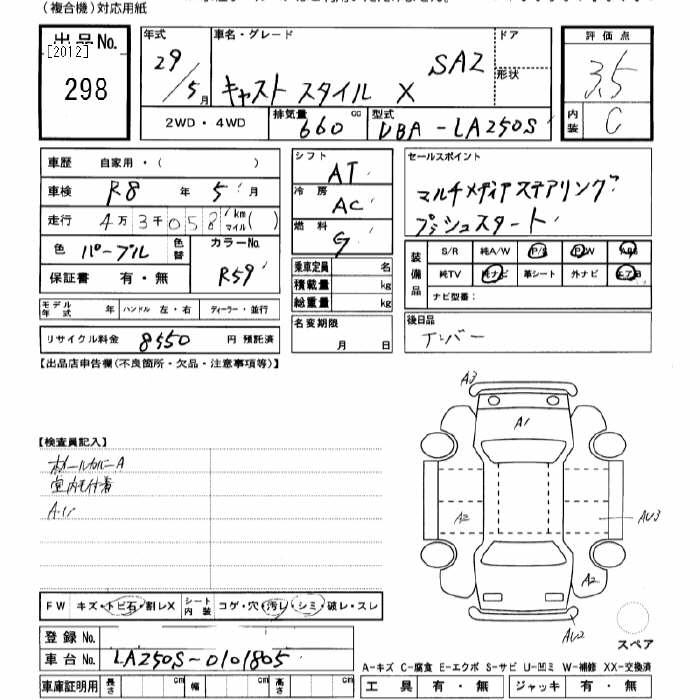 (複合機)対応用紙
出品No.
[2012]
298
年式
29/5月
車名・グレード
キャスト スタイル X SA2
ドア
形状
2WD・4WD
排気量 660 cc
型式 DBA-LA250S
評価点
3.5
内装 C
車歴 自家用・( )
車検 R8 年 5 月
走行 4万3千058 km マイル( )
色 パープル 色替
カラーNo. R59
保証書 有・無
モデル年式 年 ハンドル 左・右 ディーラー・並行
リサイクル料金 8550 円 預託済
シフト AT
冷房 AC
燃料 G
乗車定員 名
積載量 kg
総重量 kg
名変期限
月 日
セールスポイント
マルチメディアステアリング
プッシュスタート
装備品
S/R 純A/W P/S P/W ABS
純TV 純ナビ 革シート 外ナビ エアB
ナビ型番:
後日品
【出品店申告欄(不良箇所・欠品・注意事項等)】
【検査員記入】
ホイールカバーA
室内毛付着
FW キズ・トビ石・割レX
シート内装 コゲ・穴・汚レ・シミ・破レ・スレ
登録No.
車台No. LA250S-0101805
車庫証明用 長さ cm 幅 cm 高さ cm
A3
A1
A2
AU3
A2
AU2
スペア
A-キズ C-腐食 E-エクボ S-サビ U-凹ミ W-補修 XX-交換済
工具 有・無 ジャッキ 有・無